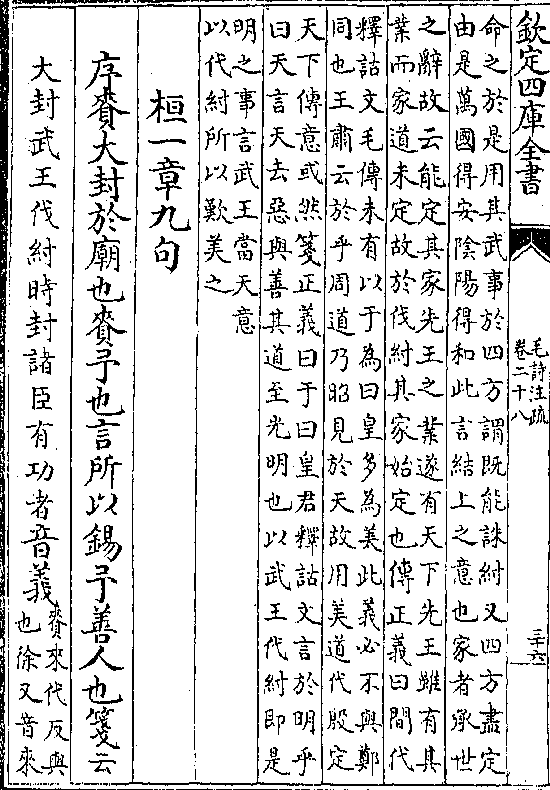 欽定四庫全書
毛詩注疏
卷二十八
三十六
命之於是用其武事於四方謂既能誅紂又四方盡定
由是萬國得安陰陽得和此言結上之意也家者承世
之辭故云能定其家先王之業遂有天下先王雖有其
業而家道未定故於伐紂其家始定也傳正義曰間代
釋詁文毛傳未有以于為曰皇多為美此義必不與鄭
同也王肅云於乎周道乃昭見於天故用美道代殷定
天下傳意或然箋正義曰于曰皇君釋詁文言於明乎
曰天言天去惡與善其道至光明也以武王代紂即是
明之事言武王當天意
以代紂所以歎美之
桓一章九句
序賚大封於廟也賚予也言所以錫予善人也箋云
大封武王伐紂時封諸臣有功者音義
賚來代反與
也徐又音來